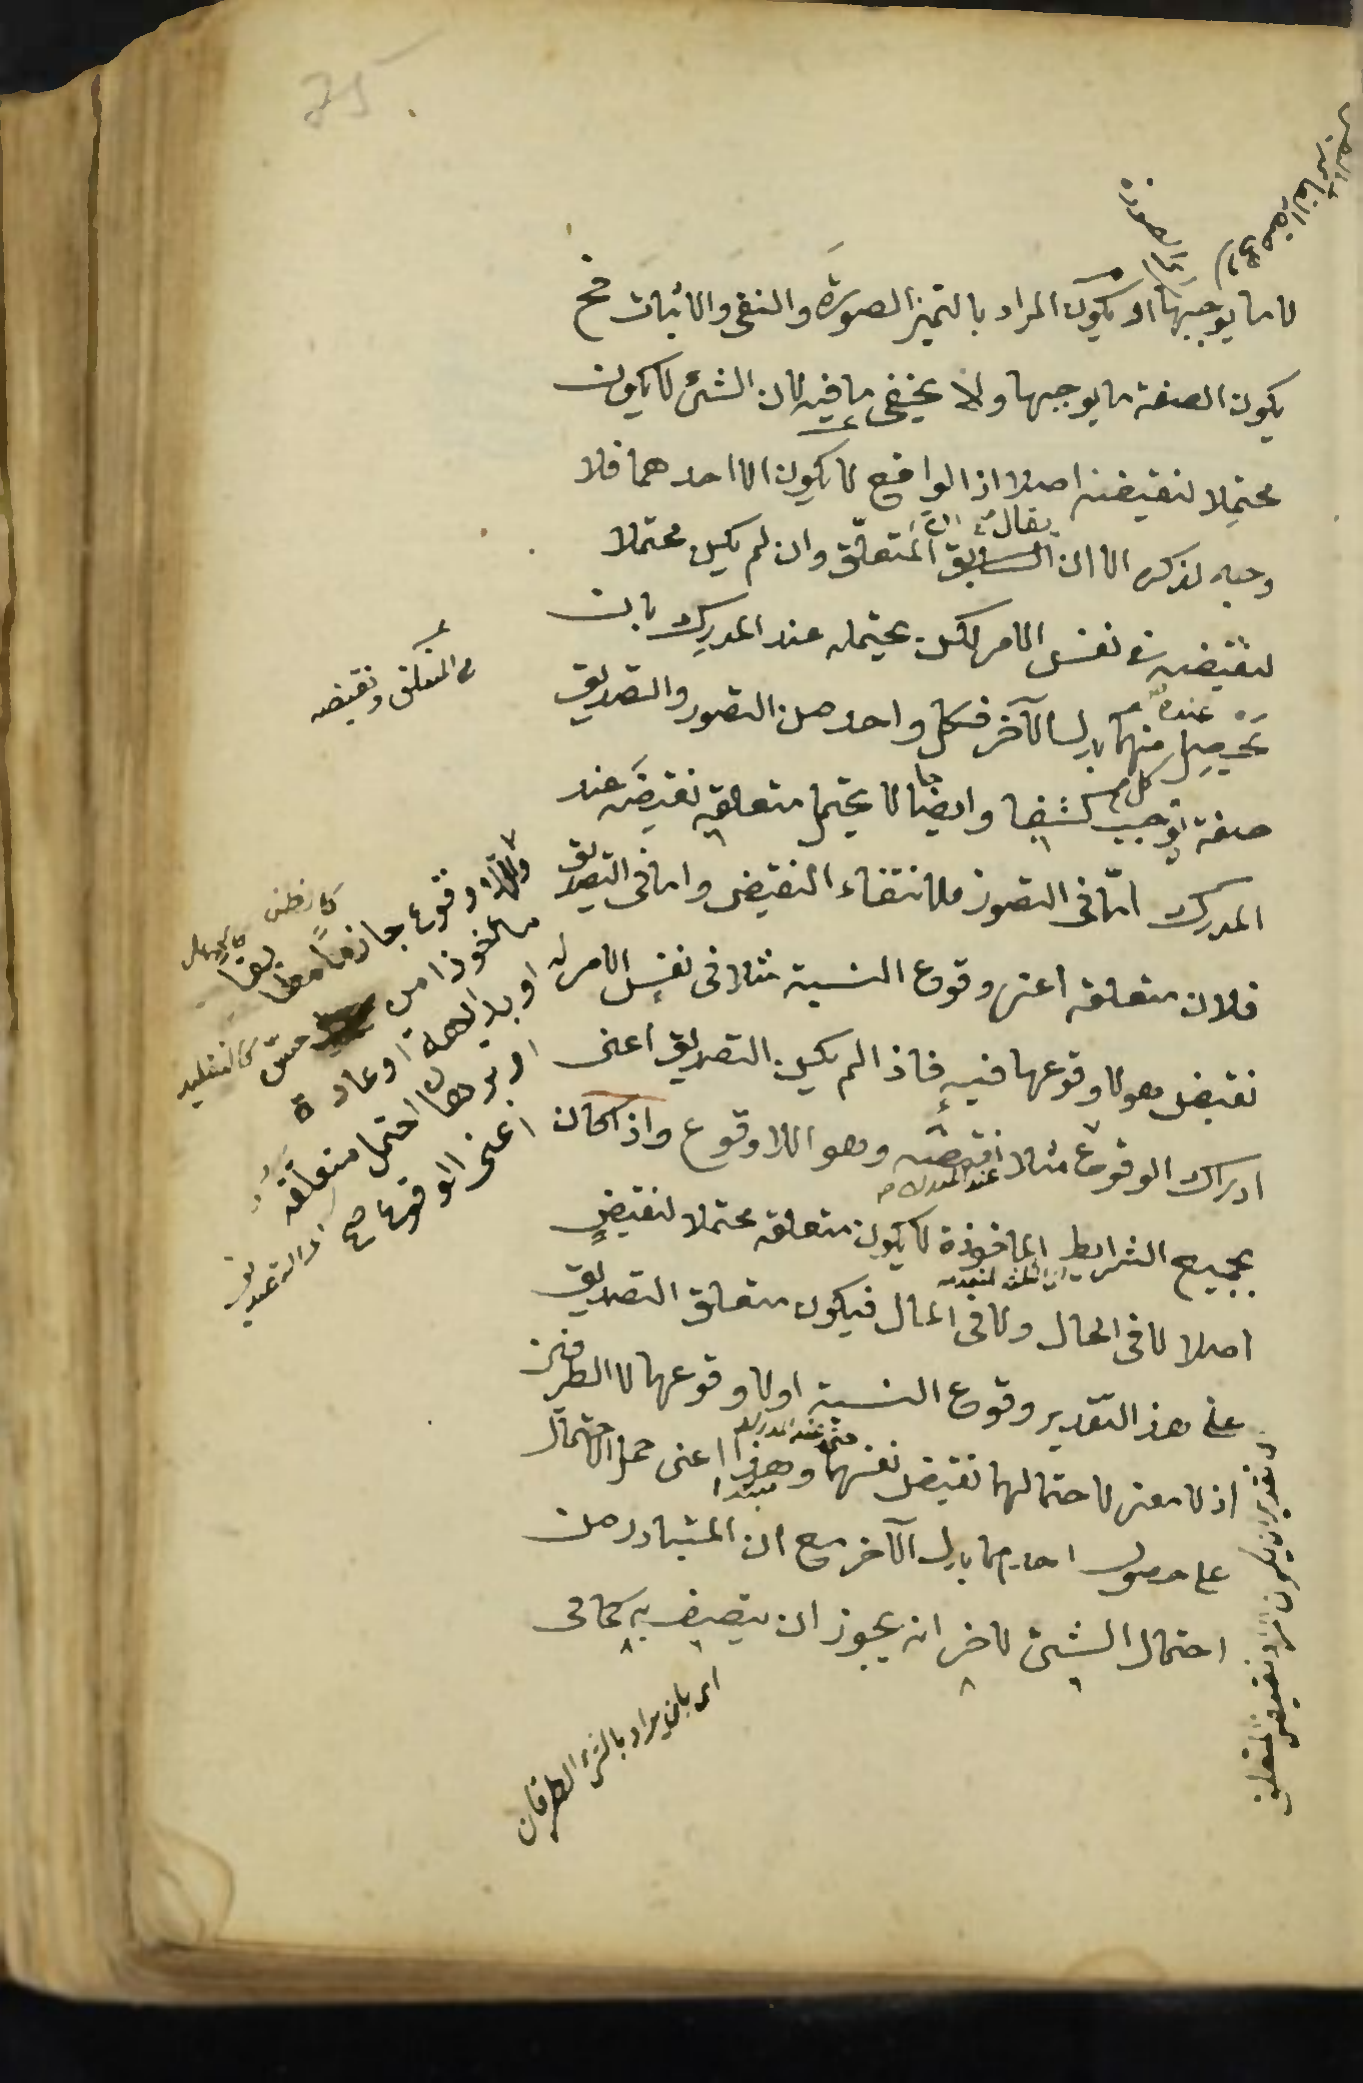 لا ما يوجبها او يكون المراد بالتميز الصورة والنفى والاثبات فح
يكون الصفة ما يوجبها ولا يخفى ما فيه لان الشئ لا يكون
محتملا لنقيضه اصلا اذ الواقع لا يكون الا احدهما فلا
وجه لذكره الا ان يقال ان المتعلق وان لم يكن محتملا
لنقيضه فى نفس الامر لكن يحتمله عند المدرك بان
يحصل عنده كل منهما بدل الآخر فكل واحد من التصور والتصديق
صفة توجب كشفا وايضا لا يحتمل متعلقه نقيضه عند
المدرك اما فى التصور فلانتفاء النقيض واما فى التصديق
فلان متعلقه اعنى وقوع النسبة مثلا فى نفس الامر له
نقيض وهو لا وقوعها فيه فاذا لم يكن التصديق اعنى
ادراك الوقوع مثلا نقيضه وهو اللاوقوع واذا كان
عند المدرك
بجميع الشرايط الماخوذة لا يكون متعلقه محتملا لنقيض
اصلا لا فى الحال ولا فى المال فيكون متعلق التصديق
على هذا التقدير وقوع النسبة او لا وقوعها لا الطرفين
اذ لا معنى لاحتمالهما نقيض نفسهما وهذا اعنى حمل الاحتمال
مبتدا
على حصول احدهما بدل الآخر مع ان المتبادر من
احتمال الشئ لاخر انه يجوز ان يتصف به كما فى
المتعلق ونقيضه
وقوع جازما مطابقا
ماخوذا من حس
او بداهة او عادة
او برهان احتمل متعلقه
اعنى الوقوع صح
كالتقليد
اى بان يراد بالتميز الطرفان